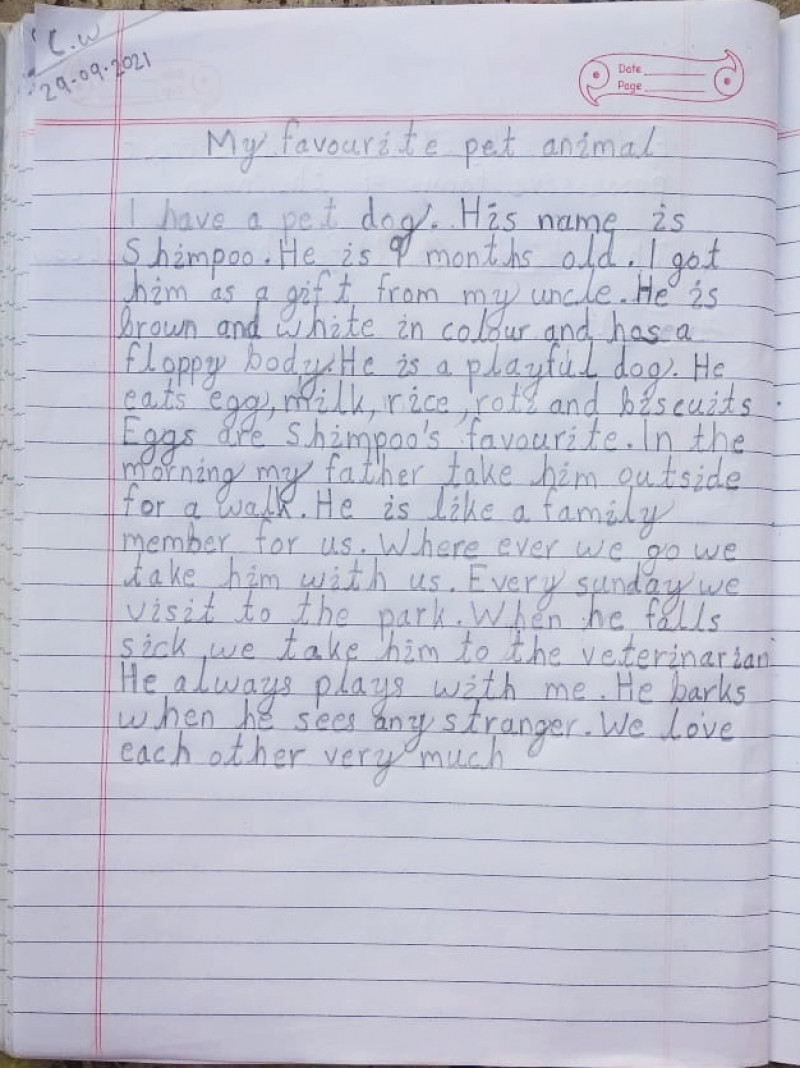 C.W
29-09-2021
Date
Page
My favourite pet animal
I have a pet dog. His name is
Shimpoo. He is 9 months old. I got
him as a gift from my uncle. He is
brown and white in colour and has a
floppy body. He is a playful dog. He
eats egg, milk, rice, roti and biscuits.
Eggs are Shimpoo's favourite. In the
morning my father take him outside
for a walk. He is like a family
member for us. Where ever we go we
take him with us. Every sunday we
visit to the park. When he falls
sick we take him to the veterinarian
He always plays with me. He barks
when he sees any stranger. We love
each other very much